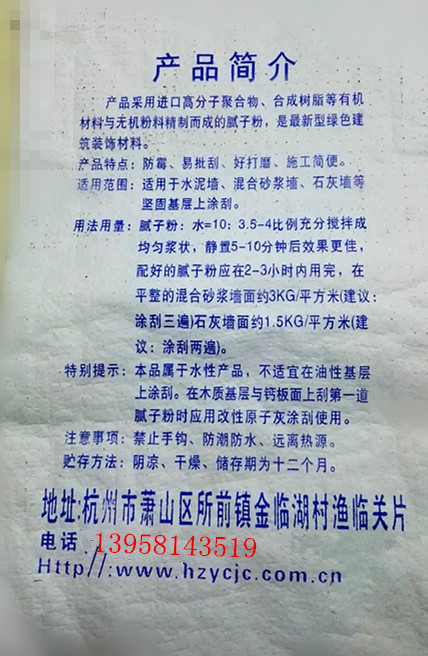 产品简介
产品采用进口高分子聚合物、合成树脂等有机
材料与无机粉料精制而成的腻子粉，是最新型绿色建
筑装饰材料。
产品特点：防霉、易批刮、好打磨、施工简便。
适用范围：适用于水泥墙、混合砂浆墙、石灰墙等
坚固基层上涂刮。
用法用量：腻子粉：水=10：3.5-4比例充分搅拌成
均匀浆状，静置5-10分钟后效果更佳，
配好的腻子粉应在2-3小时内用完，在
平整的混合砂浆墙面约3KG/平方米(建议：
涂刮三遍)石灰墙面约1.5KG/平方米(建
议：涂刮两遍)。
特别提示：本品属于水性产品，不适宜在油性基层
上涂刮。在木质基层与钙板面上刮第一道
腻子粉时应用改性原子灰涂刮使用。
注意事项：禁止手钩、防潮防水、远离热源。
贮存方法：阴凉、干燥、储存期为十二个月。
地址:杭州市萧山区所前镇金临湖村渔临关片
电话 13958143519
Http//:www.hzycjc.com.cn